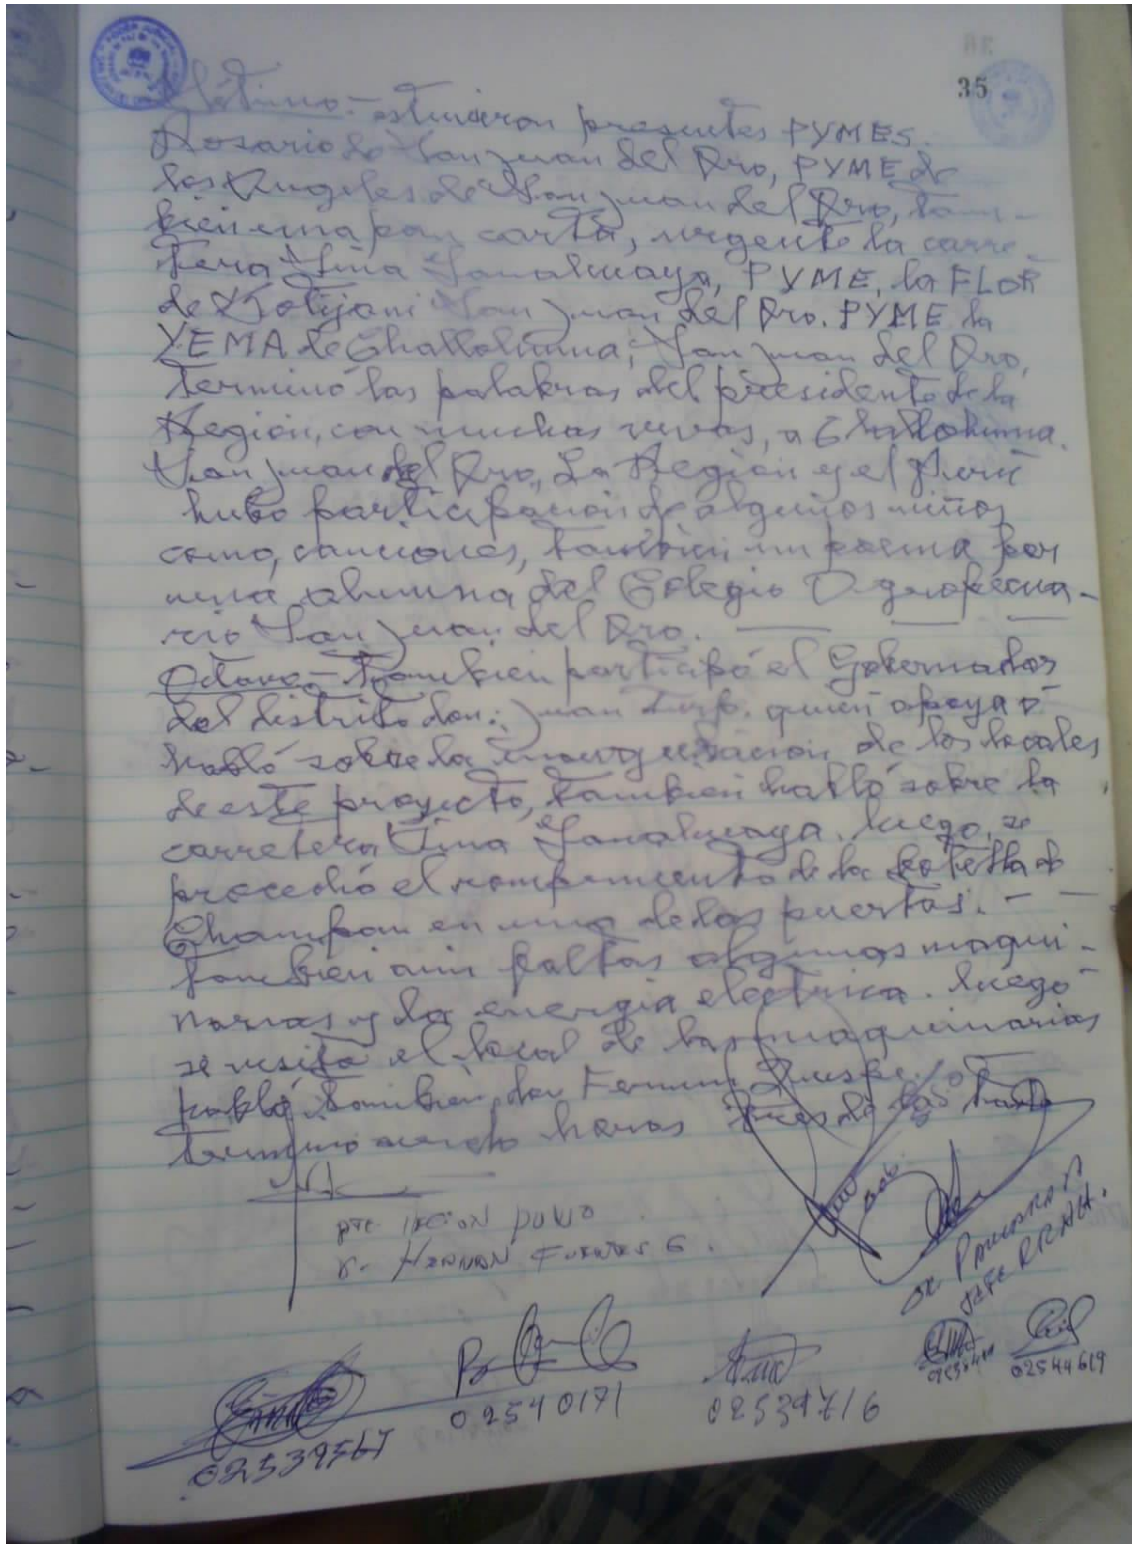 35
Sétimo.- estuvieron presentes PYMES.
Rosario de San Juan del Oro, PYME de
los Angeles de San Juan del Oro, tam-
bien una pan carta, urgente la carre-
tera Yanahuaya, PYME, la FLOR
de San Juan del Oro. PYME la
YEMA de Challohuma; San Juan del Oro,
Terminó las palabras del presidente de la
Región, con muchas vivas, a Challohuma.
San Juan del Oro, La Región y el Perú
hubo participación de algunos niños
como, canciones, tambien un poema por
una alumna del Colegio Agropecua-
rio San Juan del Oro.
Octavo.- Tambien participó el Gobernador
del distrito don: Juan quien apoya
habló sobre la de los locales
de este proyecto, tambien habló sobre la
carretera Yanahuaya. luego, se
procedió el rompimiento de la botella de
Champan en una de las puertas. -
Tambien aun faltas algunas maqui-
narias y la energia electrica. luego
se visitó el local de las maquinarias
habló tambien don Fermin Quispe.
termino siendo horas tres de la tarde
PTE REGION PUNO
HERNAN FUENTES G.
JEFE RRHH.
02540171
02539716
02544619